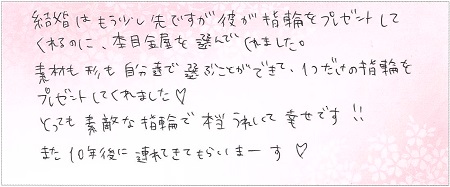 結婚はもう少し先ですが彼が指輪をプレゼントして
くれるのに、杢目金屋を選んでくれました。
素材も形も自分達で選ぶことができて、1つだけの指輪を
プレゼントしてくれました♡
とっても素敵な指輪で本当うれしくて幸せです!!
また10年後に連れてきてもらいまーす♡